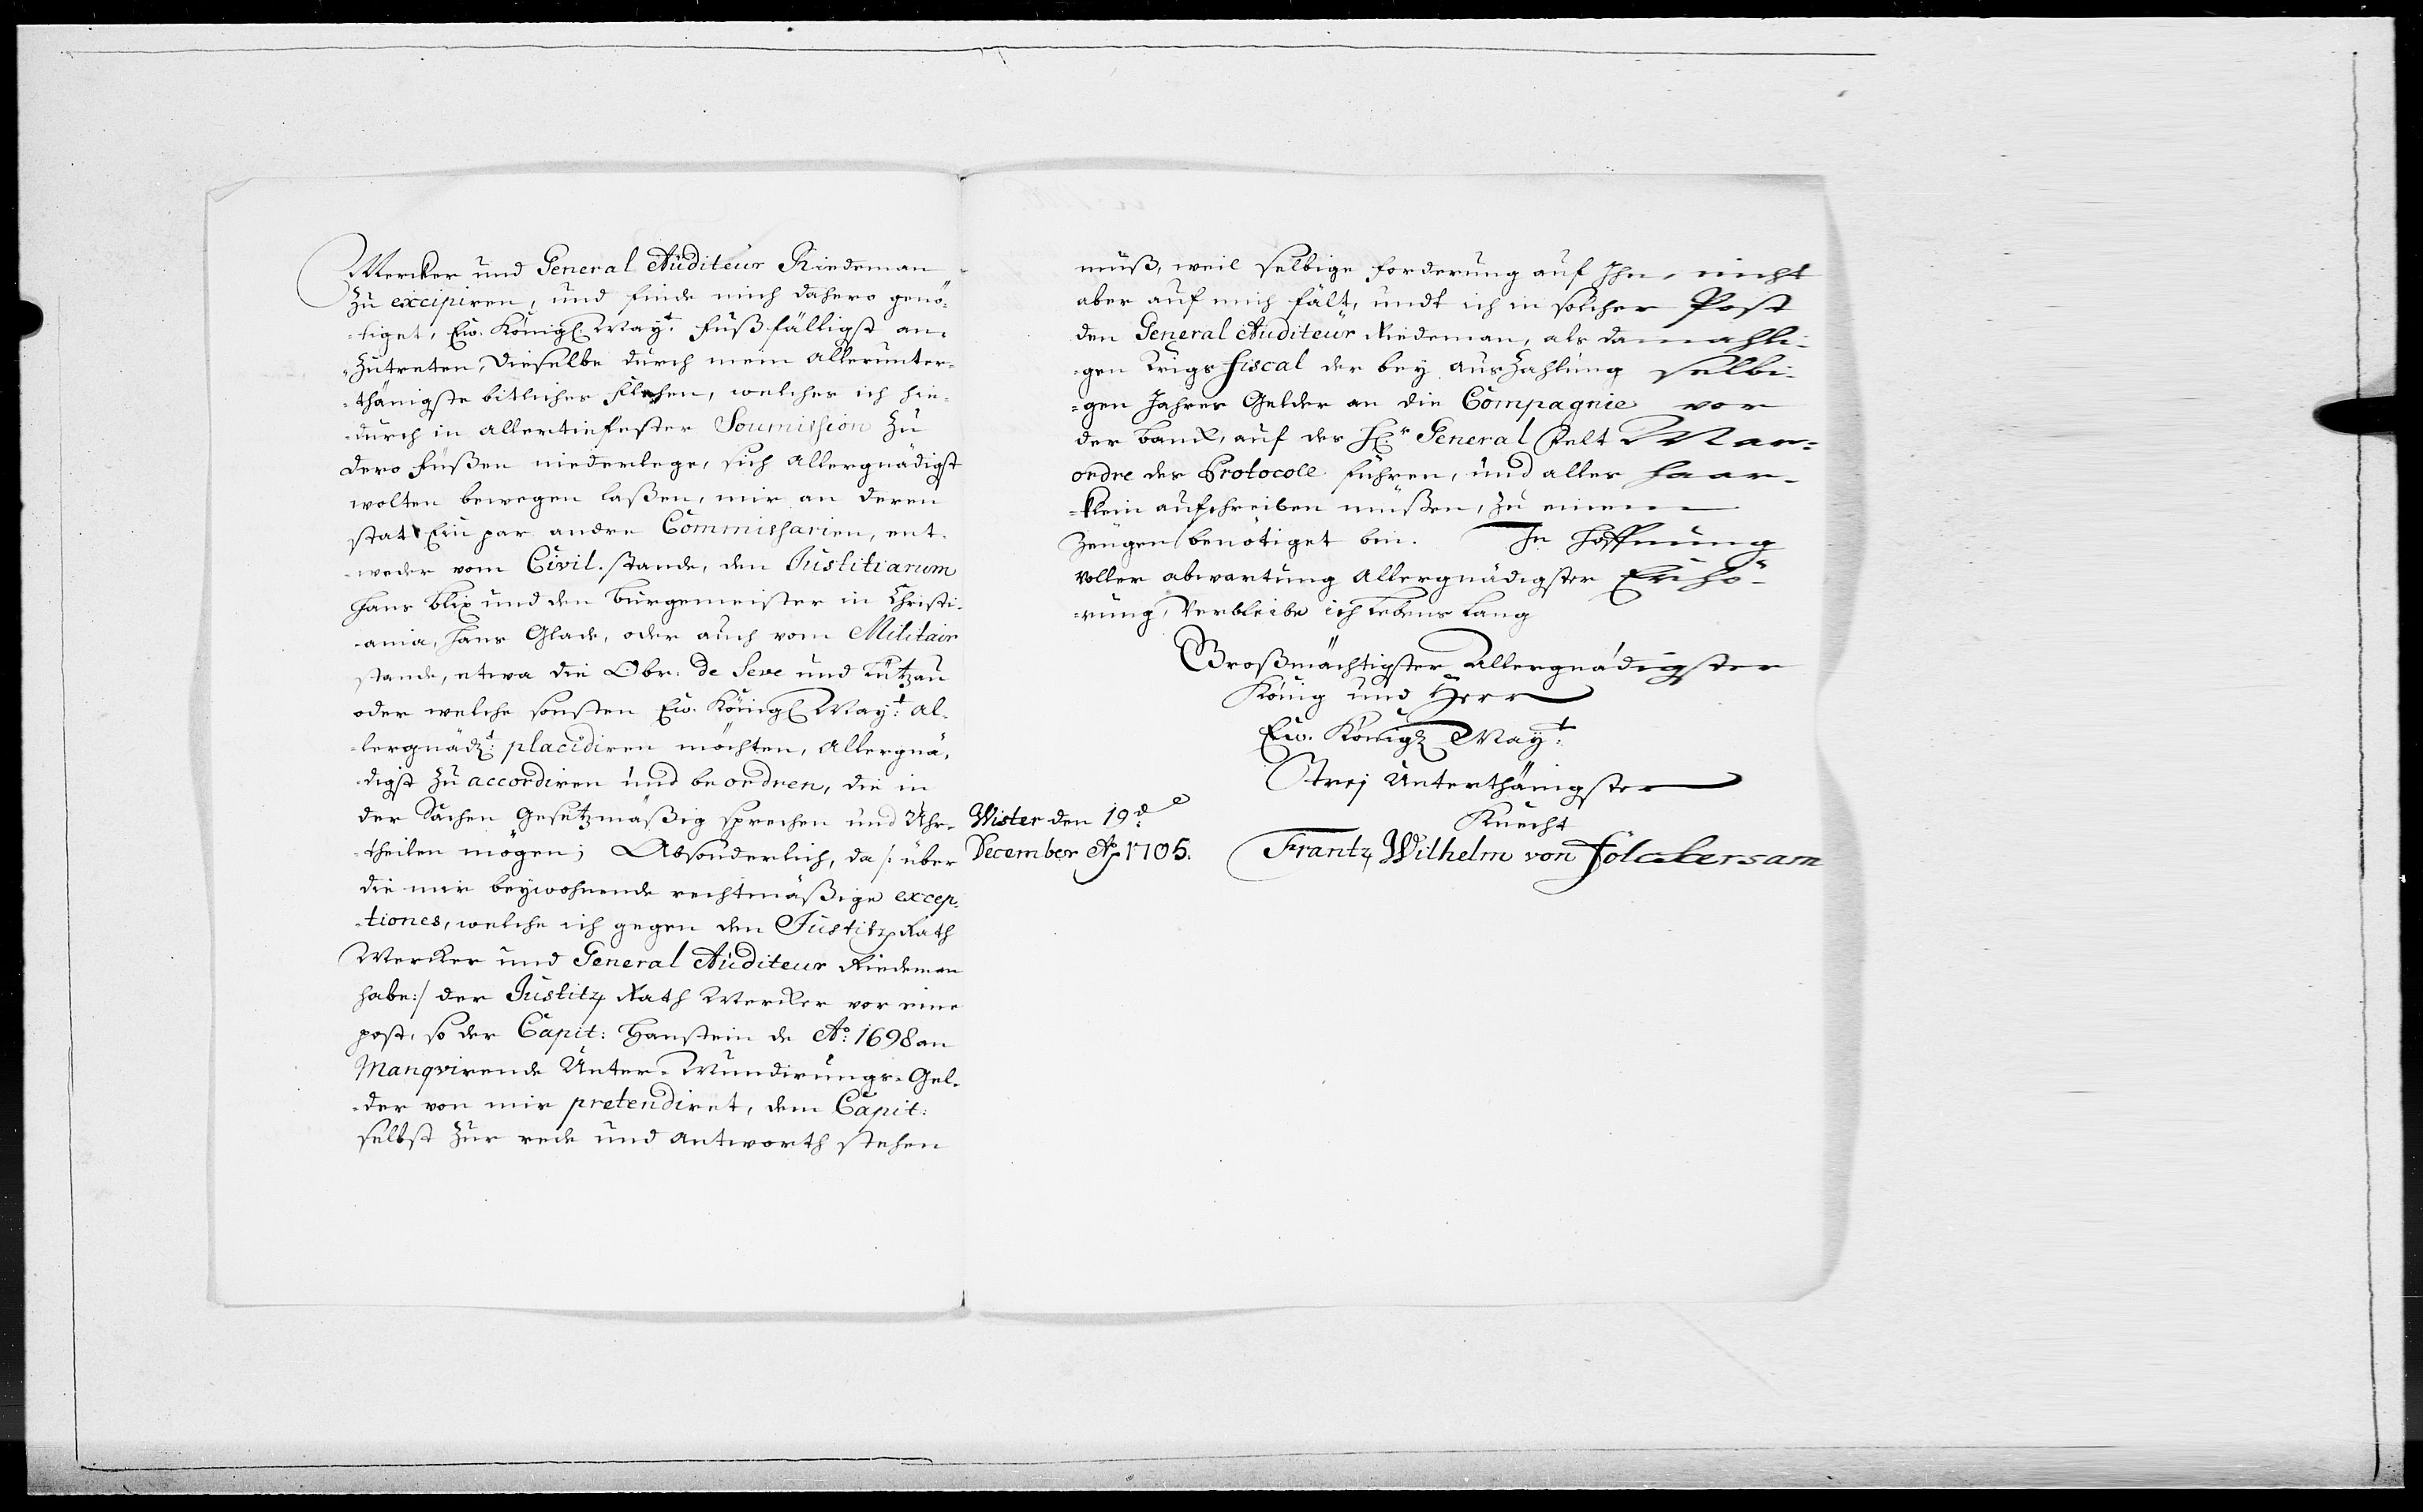 Mercker und General Auditeur Riedeman
zu excipiren, und finde mich dahero genö-
-tiget, Ew. Königl. Mayt. fußfälligst an-
-zutreten, Dieselbe durch mein allerunter-
-thänigstes bitliches flehen, welches ich hie-
-durch in allertiefester Soumission zu
dero füßen niederlege, sich allergnädigst
wolten bewegen laßen, mir an deren
stat Ein par andre Commissarien, ent-
-weder vom Civil-stande, den Justitiarium
Hans Blix und den Bürgemeister in Christi-
-ania, Hans Glade, oder auch vom Militair
stande, etwa die Obr: de Seve und Lützau
oder welche sonsten Ew. Königl Mayt: al-
-lergnädt: placidiren möchten, allergnä-
-digst zu accordiren und beordren, die in
der Sachen Gesetzmäßig sprechen und Uhr-
-theilen mögen; Absonderlich, da /: über
die mir beywohnende rechtmäßige excep-
-tiones, welche ich gegen den Justitz Rath
Mercker und General Auditeur Riedeman
habe:/ der Justitz Rath Mercker vor eine
post, so der Capit: Hanstein de Ao: 1698 an
Manqvirende Unter-Mundirungs-Gel-
-der von mir pretendiret, dem Capit:
selbst zur rede und antworth stehen
muß, weil selbige forderung auf Ihn, nicht
aber auf mich fält, undt ich in solcher Post
den General Auditeur Riedeman, als damahli-
-gen Krigs fiscal der bey auszahlung selbi-
-gen Jahres Gelder an die Compagnie vor
der banck, auf des H: General felt Mar-
ordre des Protocoll führen, und alles haar-
-klein aufschreiben müßen, zu einem
Zeugen benötiget bin. In Hoffnung
voller abwartung allergnädigster Erhö-
-rung, Verbleibe ich lebens lang
Großmächtigster Allergnädigster
König und Herr
Ew. Königl Mayt:
Treu Unterthänigster
Knecht
Wister den 19de
December Ao 1705.
Frantz Wilhelm von Fölckersam